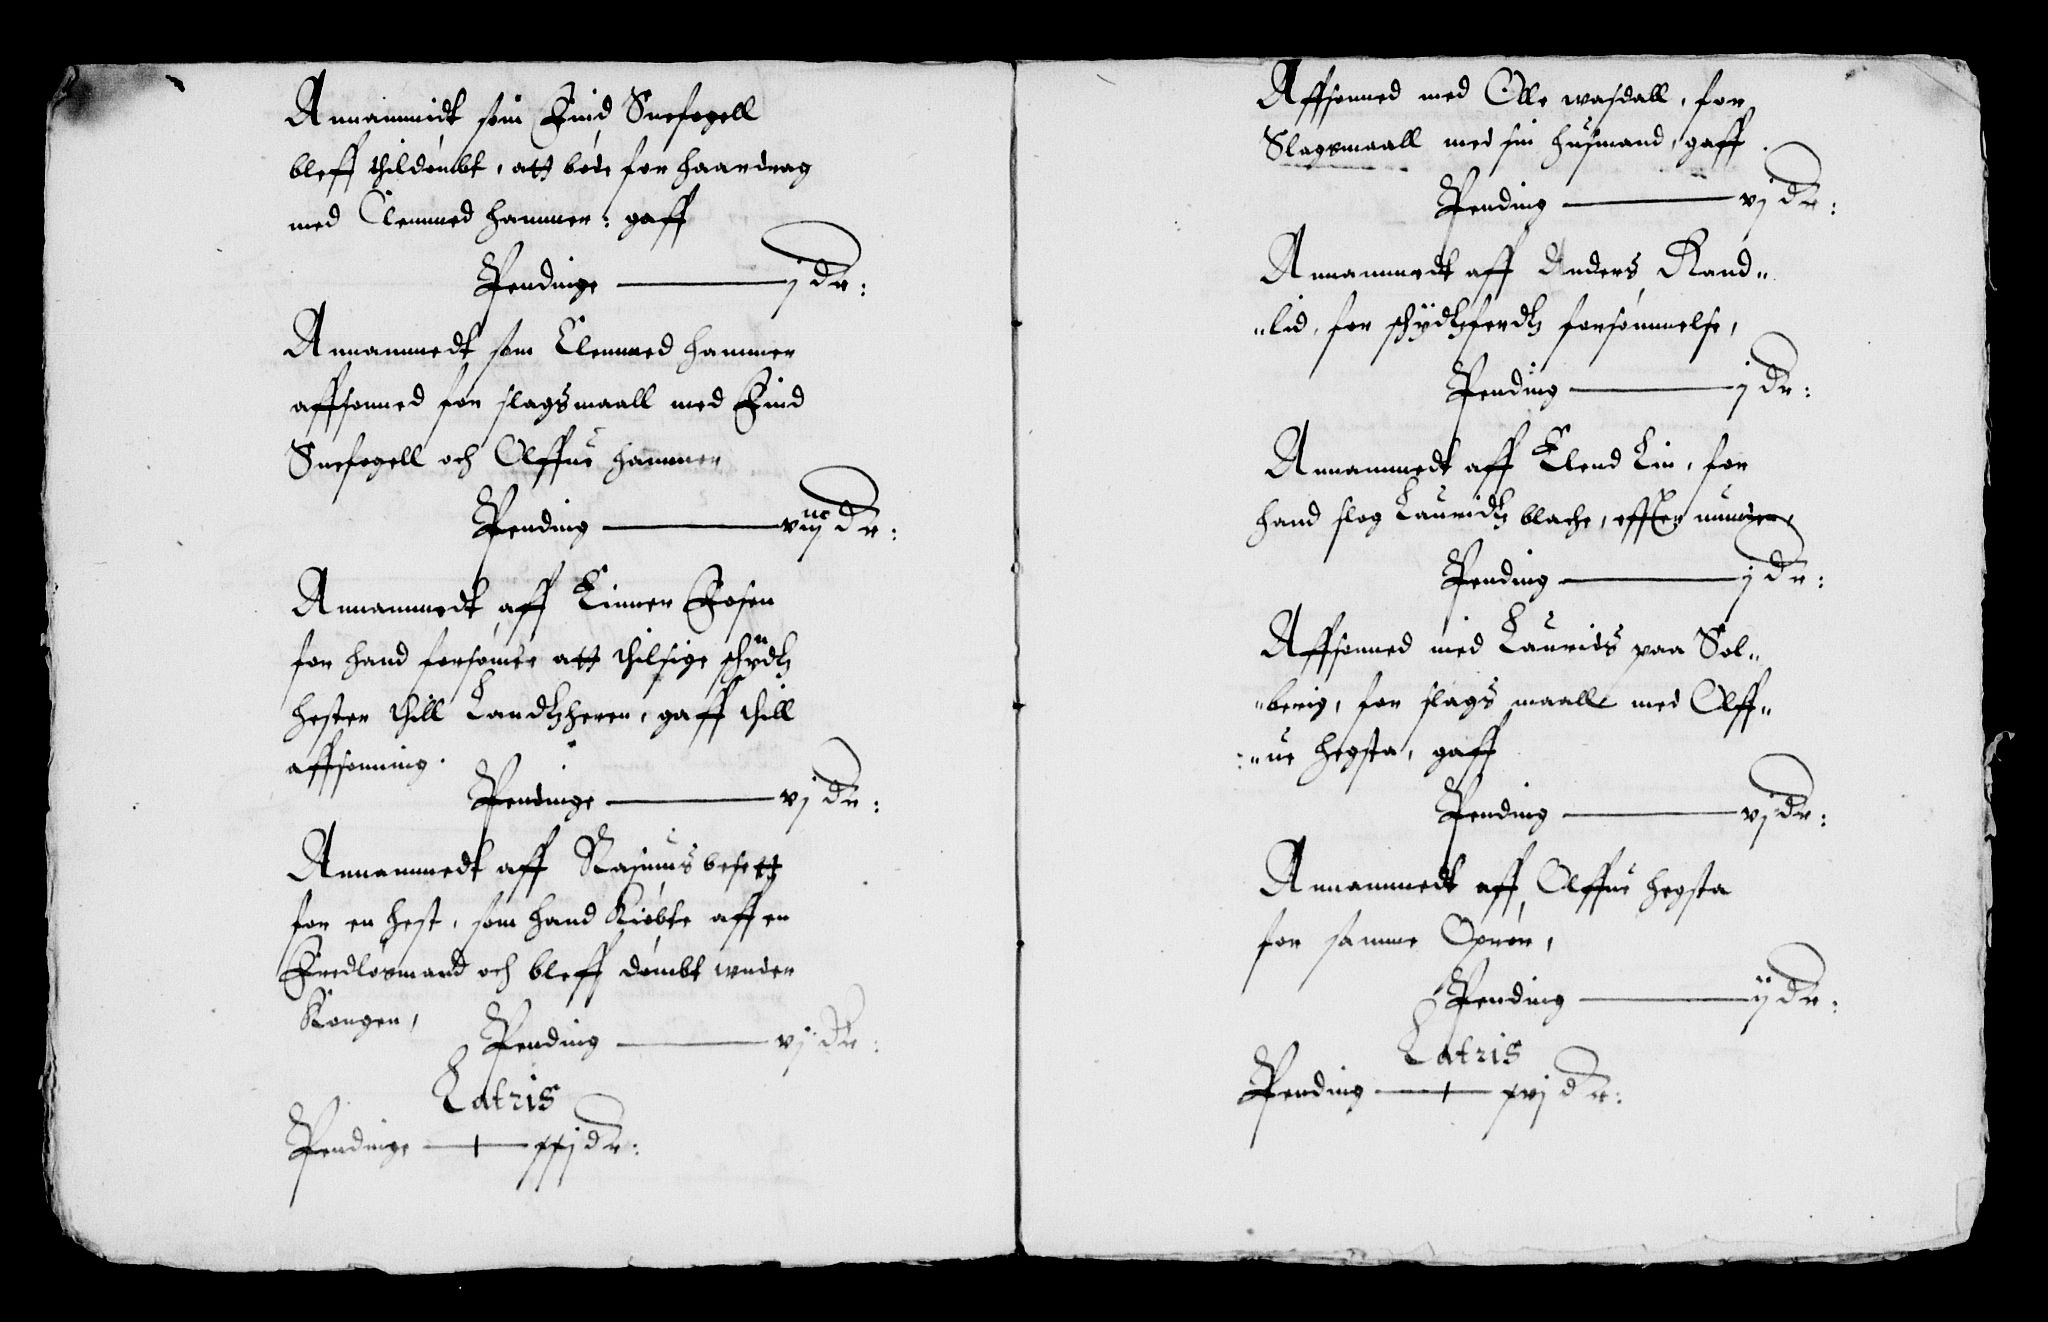 Annammidt som Find Snefogell
bleff thildømbt, att bøde for haardrag
med Clemmed hammer: gaff
Pendinge — j dr:
Annammedt som Clemmed hammer
affsonned for slagsmaall med Find
Snefogell och Olffue hammer
Pending — viij dr:
Annammedt aff Einner Fosen
for hand forsømte att thilsige schydtz
hester thill Landtzherren, gaff thill
affsonning.
Pendinge — vj dr:
Annammedt aff Rasmus besettz
for en hest, som hand Kiøbte aff en
Fredløsmand och bleff dømbt wnder
Kongen,
Pending — vj dr:
Latris
Pendinge — xxj dr:
Affsonned med Olle wasdall, for
Slagsmaall med sin husmand, gaff
Pending — vj dr:
Annammedt aff Anders Rand-
-lid, for schydtzferdtz forsømmelse,
Pending — j dr:
Annammedt aff Elend Lin, for
hand slog Lauridtz blache,
Pending — j dr:
Affsonned med Laurids paa Sol-
-berig, for slags maall med Olff-
-ue hegsta, gaff
Pending — vj dr:
Annammedt aff Olffue hegsta
for samme Oprør,
Pending — ij dr:
Latris
Pending — xvj dr: